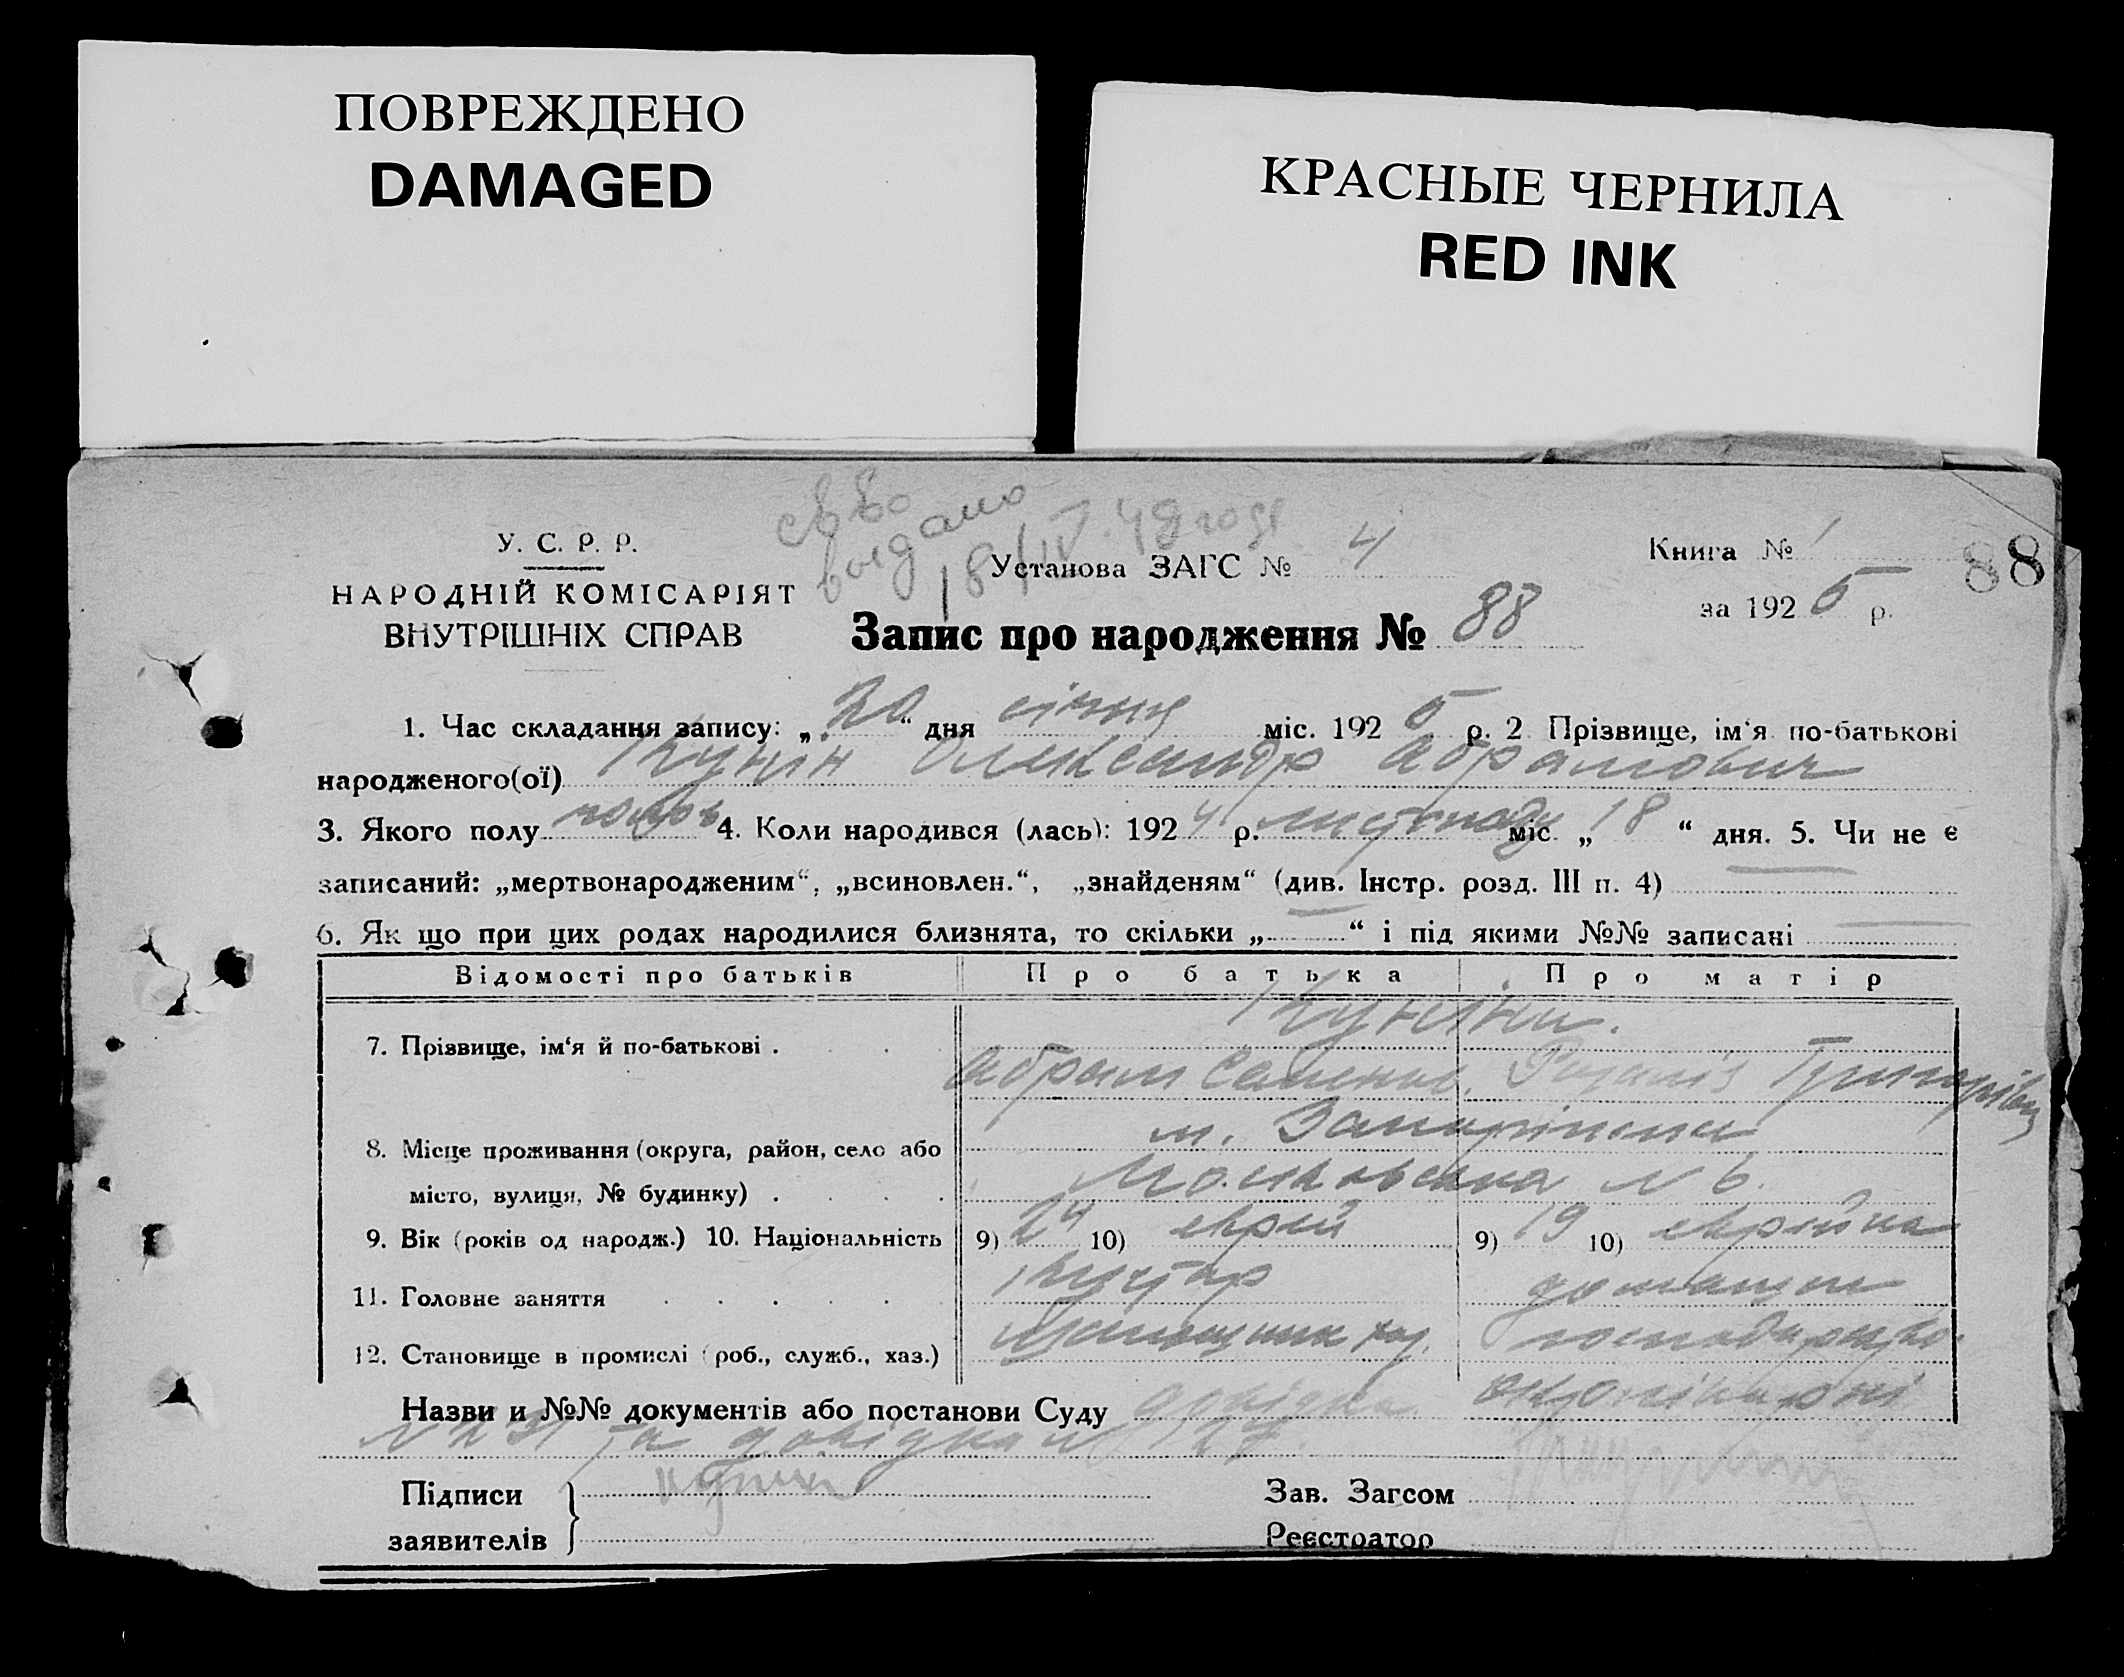 ПОВРЕЖДЕНО
DAMAGED
КРАСНЫЕ ЧЕРНИЛА
RED INK
св во
выдано
18/IV. 49 года
У. С. Р. Р.
НАРОДНІЙ КОМІСАРІЯТ
ВНУТРІШНІХ СПРАВ
Установа ЗАГС № 4
Книга № 1
88
за 1925 р.
Запис про народження № 88
1. Час складання запису: „20“ дня січня міс. 1925 р. 2 Прізвище, ім‘я по-батькові
народженого(ої) Кунин Олександр Абрамович
3. Якого полу 4. Коли народився (лась): 1924 р. листопаду міс. „18“ дня. 5. Чи не є
записаний: „мертвонародженим“, „всиновлен.“, „знайденям“ (див. Інстр. розд. III п. 4) —
6. Як що при цих родах народилися близнята, то скільки „—“ і під якими №№ записані —
Відомості про батьків Про батька Про матір
7. Прізвище, ім‘я й по-батькові . Куніни.
Абрам Григорівна
8. Місце проживання (округа, район, село або м.
місто, вулиця, № будинку) . Московська № 6.
9. Вік (років од народж.) 10. Національність 9) 24 10) еврей 9) 19 10) еврейка
11. Головне заняття
12. Становище в промислі (роб., служб., хаз.)
Назви и №№ документів або постанови Суду довідка
та довідка
Підписи
заявителів
Зав. Загсом
Реєстратор